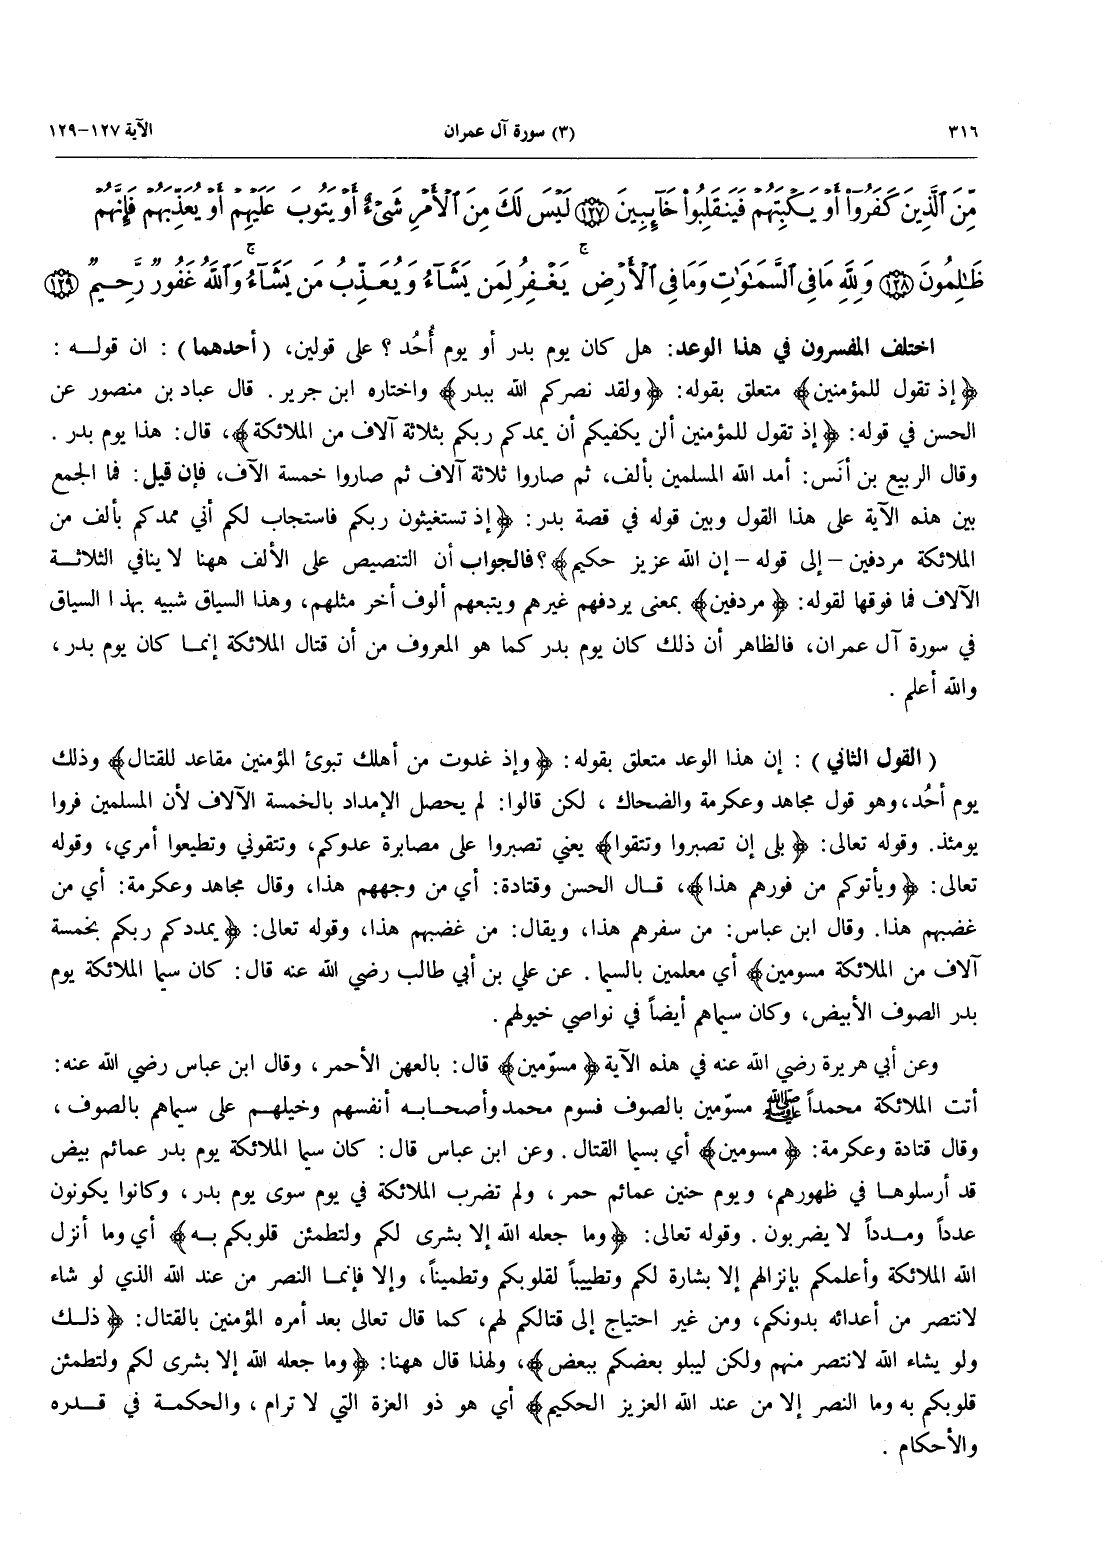 ٣١٦ (٣) سورة آل عمران الآية ١٢٧-١٢٩
مِّنَ ٱلَّذِينَ كَفَرُوٓاْ أَوۡ يَكۡبِتَهُمۡ فَيَنقَلِبُواْ خَآئِبِينَ ١٢٧ لَيۡسَ لَكَ مِنَ ٱلۡأَمۡرِ شَىۡءٌ أَوۡ يَتُوبَ عَلَيۡهِمۡ أَوۡ يُعَذِّبَهُمۡ فَإِنَّهُمۡ
ظَٰلِمُونَ ١٢٨ وَلِلَّهِ مَا فِى ٱلسَّمَٰوَٰتِ وَمَا فِى ٱلۡأَرۡضِۚ يَغۡفِرُ لِمَن يَشَآءُ وَيُعَذِّبُ مَن يَشَآءُۚ وَٱللَّهُ غَفُورٌ رَّحِيمٌ ١٢٩
اختلف المفسرون في هذا الوعد: هل كان يوم بدر أو يوم أُحُد ؟ على قولين، (أحدهما) : ان قولـه :
﴿إذ تقول للمؤمنين﴾ متعلق بقوله: ﴿ولقد نصركم الله ببدر﴾ واختاره ابن جرير . قال عباد بن منصور عن
الحسن في قوله: ﴿إذ تقول للمؤمنين ألن يكفيكم أن يمدكم ربكم بثلاثة آلاف من الملائكة﴾، قال: هذا يوم بدر .
وقال الربيع بن أنَس: أمد الله المسلمين بألف، ثم صاروا ثلاثة آلاف ثم صاروا خمسة الآف، فإن قيل: فما الجمع
بين هذه الآية على هذا القول وبين قوله في قصة بدر: ﴿إذ تستغيثون ربكم فاستجاب لكم أني ممدكم بألف من
الملائكة مردفين - إلى قوله - إن الله عزيز حكيم﴾؟ فالجواب أن التنصيص على الألف ههنا لا ينافي الثلاثـة
الآلاف فما فوقها لقوله: ﴿مردفين﴾ بمعنى يردفهم غيرهم ويتبعهم ألوف أخر مثلهم، وهذا السياق شبيه بهذا السياق
في سورة آل عمران، فالظاهر أن ذلك كان يوم بدر كما هو المعروف من أن قتال الملائكة إنمـا كان يوم بدر ،
والله أعلم .
(القول الثاني) : إن هذا الوعد متعلق بقوله: ﴿وإذ غدوت من أهلك تبوئ المؤمنين مقاعد للقتال﴾ وذلك
يوم أحُد، وهو قول مجاهد وعكرمة والضحاك ، لكن قالوا: لم يحصل الإمداد بالخمسة الآلاف لأن المسلمين فروا
يومئذ. وقوله تعالى: ﴿بلى إن تصبروا وتتقوا﴾ يعني تصبروا على مصابرة عدوكم، وتتقوني وتطيعوا أمري، وقوله
تعالى: ﴿ويأتوكم من فورهم هذا﴾، قـال الحسن وقتادة: أي من وجههم هذا، وقال مجاهد وعكرمة: أي من
غضبهم هذا. وقال ابن عباس: من سفرهم هذا، ويقال: من غضبهم هذا، وقوله تعالى: ﴿يمددكم ربكم بخمسة
آلاف من الملائكة مسومين﴾ أي معلمين بالسيما . عن علي بن أبي طالب رضي الله عنه قال: كان سيما الملائكة يوم
بدر الصوف الأبيض، وكان سيماهم أيضاً في نواصي خيولهم .
وعن أبي هريرة رضي الله عنه في هذه الآية ﴿مسوّمين﴾ قال: بالعهن الأحمر ، وقال ابن عباس رضي الله عنه:
أتت الملائكة محمداً ﷺ مسوّمين بالصوف فسوم محمد وأصحـابـه أنفسهم وخيلهـم على سيماهم بالصوف ،
وقال قتادة وعكرمة: ﴿مسومين﴾ أي بسيما القتال . وعن ابن عباس قال: كان سيما الملائكة يوم بدر عمائم بيض
قد أرسلوهـا في ظهورهم، ويوم حنين عمائم حمر ، ولم تضرب الملائكة في يوم سوى يوم بدر ، وكانوا يكونون
عدداً ومـدداً لا يضربون . وقوله تعالى: ﴿وما جعله الله إلا بشرى لكم ولتطمئن قلوبكم بـه﴾ أي وما أنزل
الله الملائكة وأعلمكم بإنزالهم إلا بشارة لكم وتطييباً لقلوبكم وتطميناً، وإلا فإنمـا النصر من عند الله الذي لو شاء
لانتصر من أعدائه بدونكم، ومن غير احتياج إلى قتالكم لهم، كما قال تعالى بعد أمره المؤمنين بالقتال: ﴿ذلـك
ولو يشاء الله لانتصر منهم ولكن ليبلو بعضكم ببعض﴾، ولهذا قال ههنا: ﴿وما جعله الله إلا بشرى لكم ولتطمئن
قلوبكم به وما النصر إلا من عند الله العزيز الحكيم﴾ أي هو ذو العزة التي لا ترام ، والحكمة في قـدره
والأحكام .